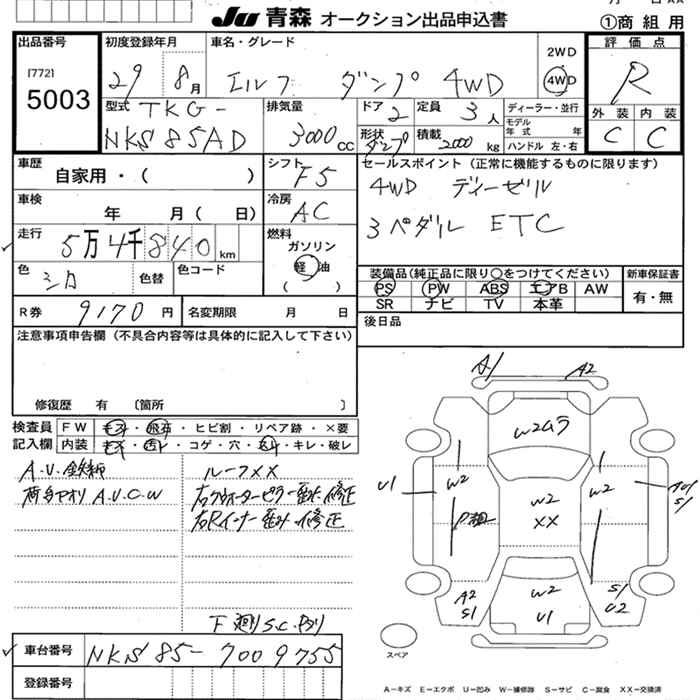 JU 青森 オークション出品申込書
①商組用
出品番号
[772]
5003
初度登録年月
29 8月
車名・グレード
エルフ ダンプ 4WD
2WD
4WD
評価点
R
外装 内装
C C
型式 TKG-
NKS85AD
排気量
3000cc
ドア 2
形状 ダンプ
定員 3人
積載 2000kg
ディーラー・並行
モデル年式 年
ハンドル 左・右
車歴
自家用・( )
シフト F5
車検
年 月( 日)
冷房 AC
走行
5万4千840km
燃料
ガソリン
軽油
( )
色 シロ
色替
色コード
R券 9170円
名変期限 月 日
セールスポイント(正常に機能するものに限ります)
4WD ディーゼル
3ペダル ETC
装備品(純正品に限り○をつけてください)
PS PW ABS エアB AW
SR ナビ TV 本革
新車保証書
有・無
後日品
注意事項申告欄(不具合内容等は具体的に記入して下さい)
修復歴 有 〔箇所 〕
検査員記入欄
FW キズ・飛石・ヒビ割・リペア跡・×要
内装 キズ・汚レ・コゲ・穴・スレ・キレ・破レ
A.U.鉄柄
荷台アオリ A.U.C.W
ルーフXX
右クォーターピラー歪み修正
右Rインナー歪み修正
下廻りS.C.サリ
車台番号 NKS85-7009755
登録番号
A1 A2
W2ムラ
U1
W2
W2
XX
W2
S1
A2
S1
W2
U1
S1
U2
スペア
A－キズ E－エクボ U－凹み W－補修跡 S－サビ C－腐食 XX－交換済